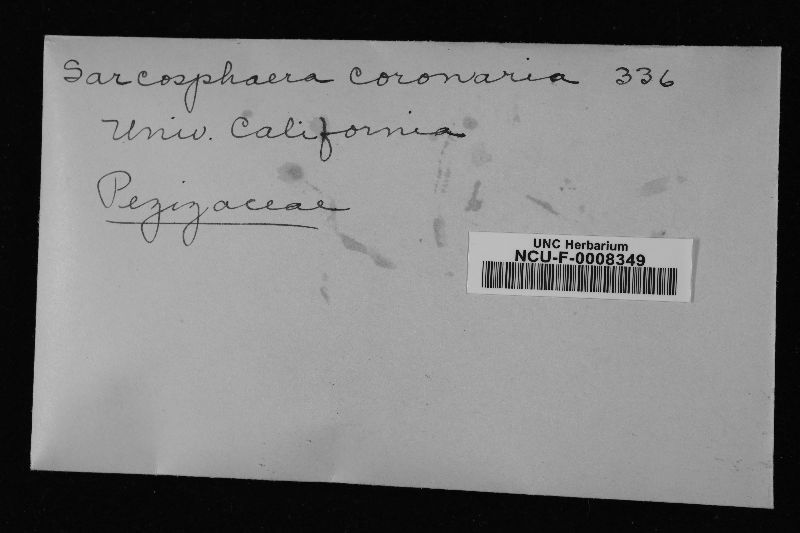 Sarcosphaera coronaria 336
Univ. California
Pezizaceae
UNC Herbarium
NCU-F-0008349